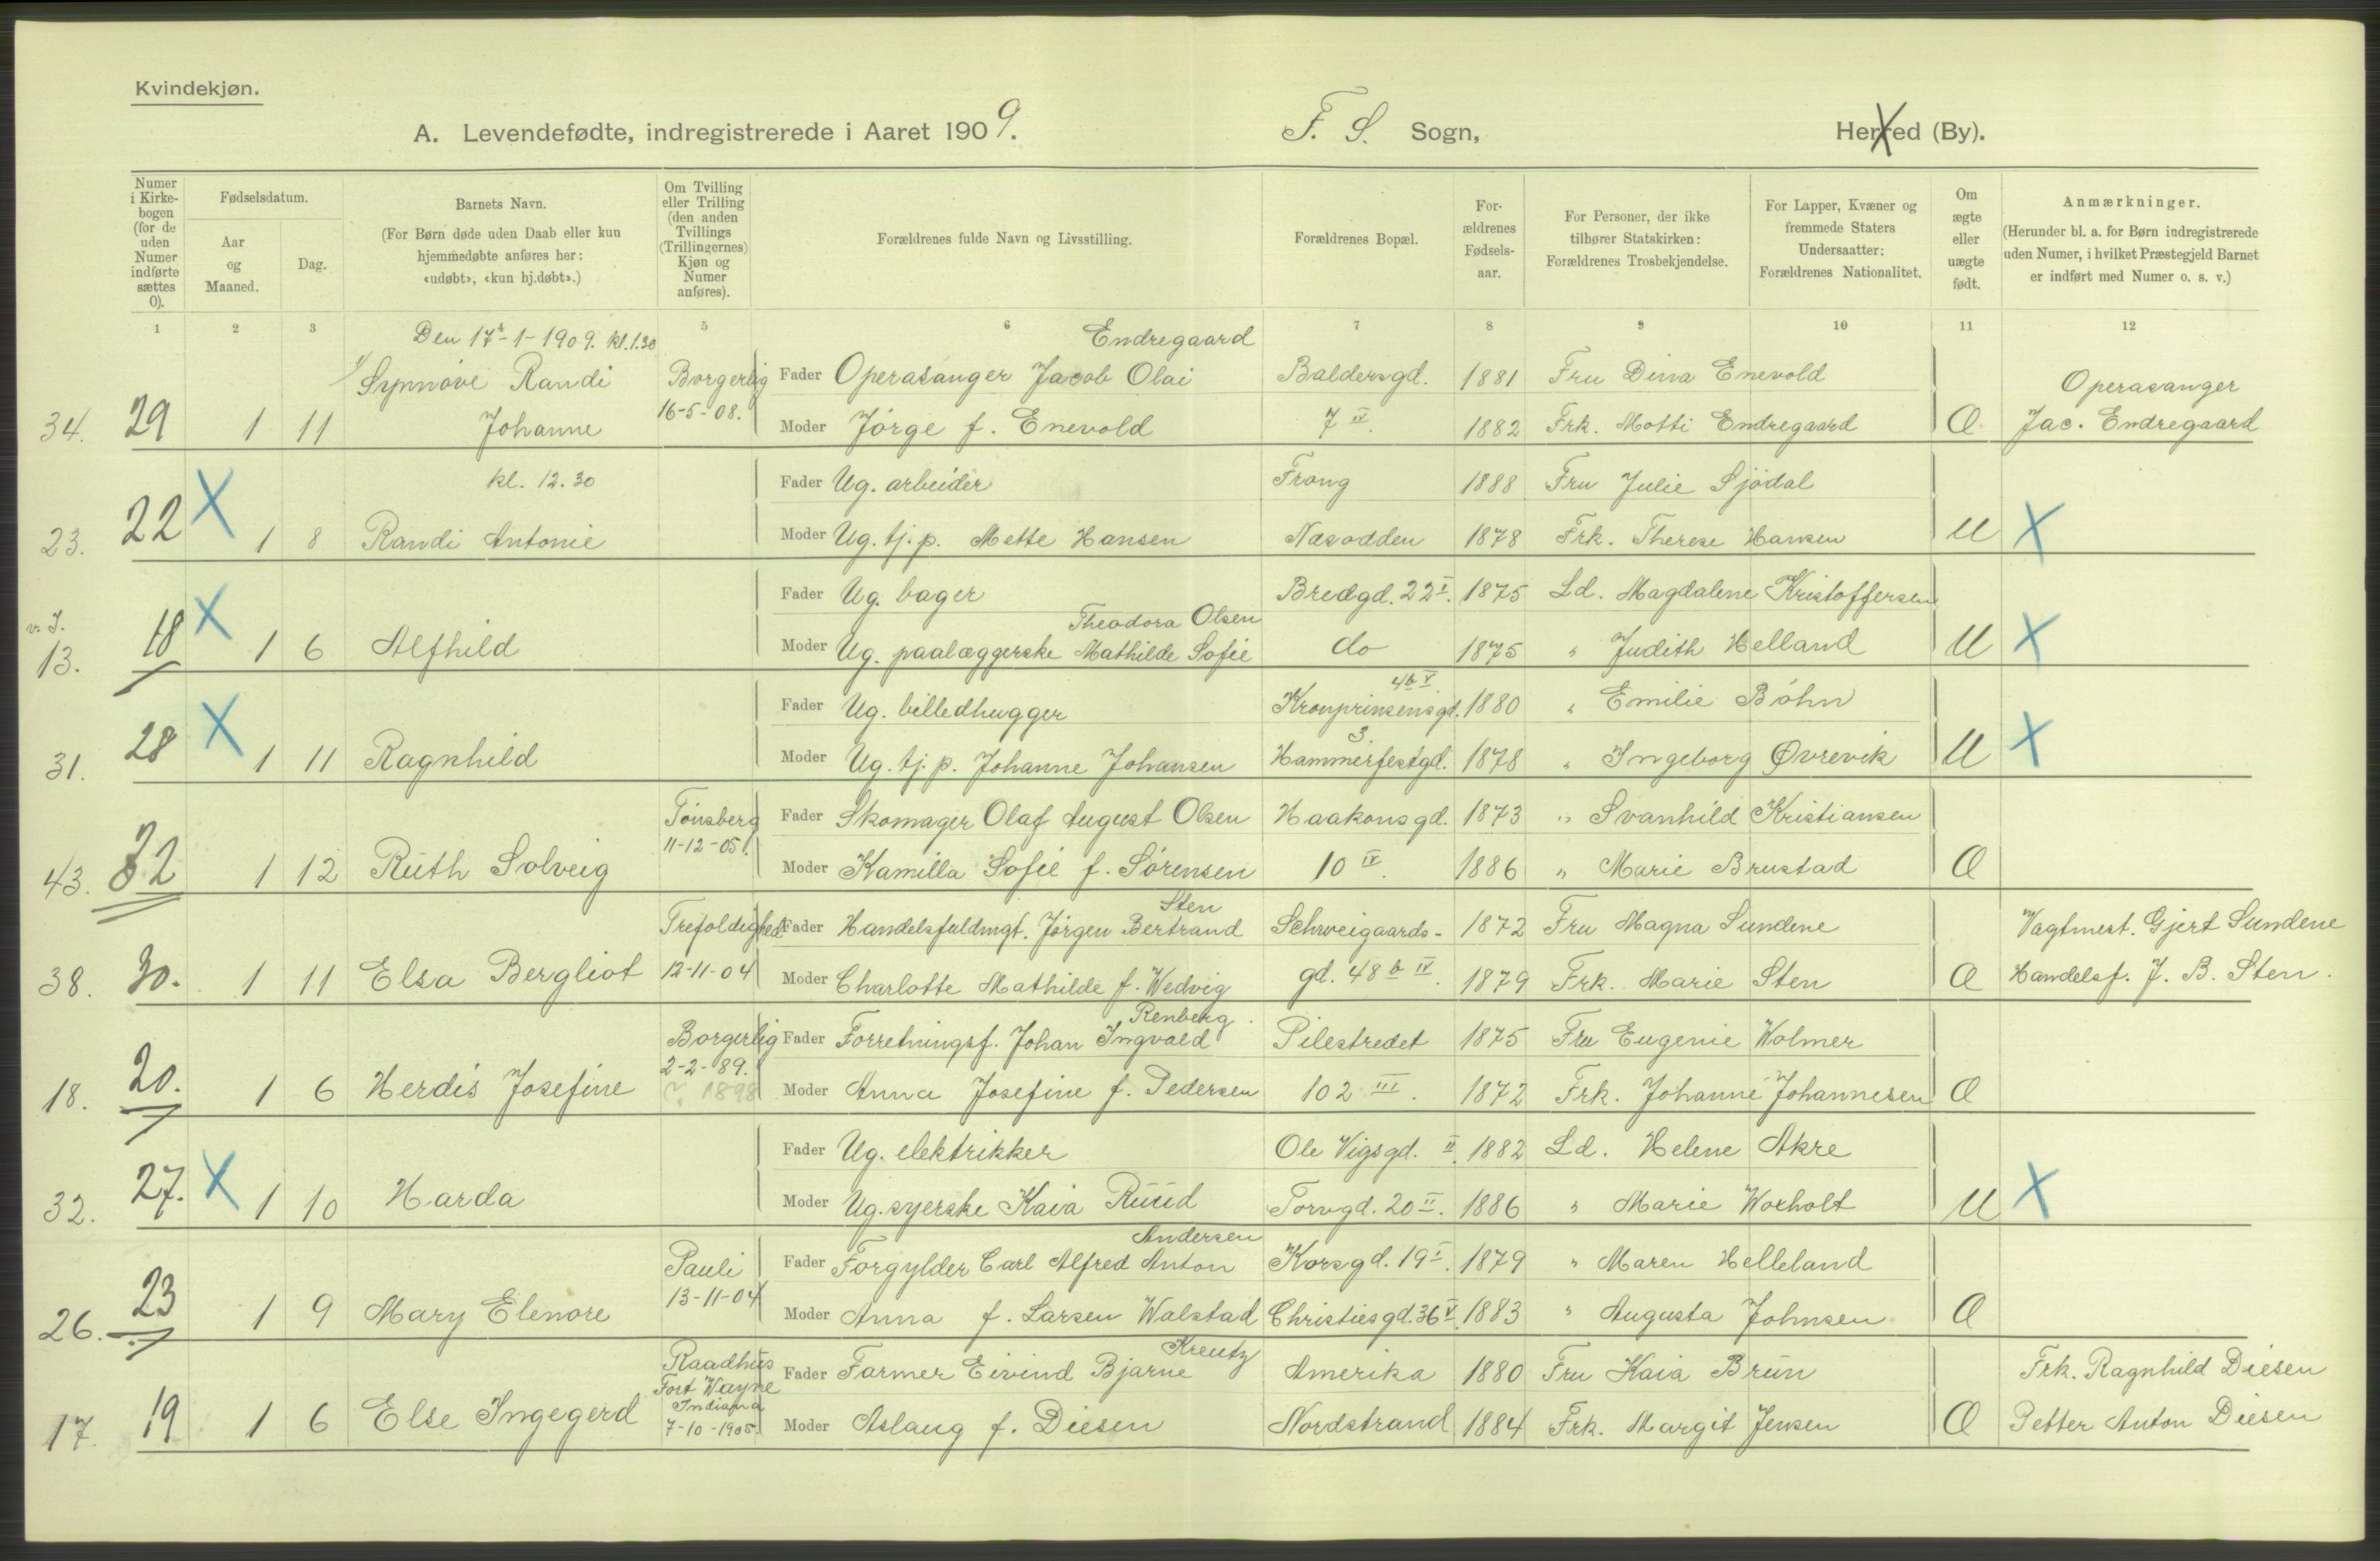 Kvindekjøn.
A. Levendefødte, indregistrerede i Aaret 1909. F. S. Sogn, Herred (By).
Numer i Kirkebogen (for de uden Numer indførte sættes 0).
Fødselsdatum.
Aar og Maaned.
Dag.
Barnets Navn.
(For Børn døde uden Daab eller kun hjemmedøbte anføres her: «udøbt», «kun hj.døbt».)
Om Tvilling eller Trilling (den anden Tvillings (Trillingernes) Kjøn og Numer anføres).
Forældrenes fulde Navn og Livsstilling.
Forældrenes Bopæl.
For-ældrenes Fødsels-aar.
For Personer, der ikke tilhører Statskirken: Forældrenes Trosbekjendelse.
For Lapper, Kvæner og fremmede Staters Undersaatter: Forældrenes Nationalitet.
Om ægte eller uægte født.
Anmærkninger.
(Herunder bl. a. for Børn indregistrerede uden Numer, i hvilket Præstegjeld Barnet er indført med Numer o. s. v.)
1 2 3 5 6 7 8 9 10 11 12
Den 17-1-1909. kl. 1.30 Endregaard
Synnøve Randi Borgerlig Fader Operasanger Jacob Olai Baldersgd. 1881 Fru Dina Enevold Operasanger
34. 29 1 11 Johanne 16-5-08. Moder Jörge f. Enevold 7 IV. 1882 Frk. Motti Endregaard O Jac. Endregaard
kl. 12.30 Fader Ug. arbeider Frong 1888 Fru Julie Sjödal
23. 22 X 1 8 Randi Antonie Moder Ug. tj. p. Mette Hansen Næsodden 1878 Frk. Therese Hansen U X
Fader Ug. bager Bredgd. 22 I. 1875 Ld. Magdalene Kristoffersen
Theodora Olsen
v. I.
13. 18 X 1 6 Alfhild Moder Ug. paalæggerske Mathilde Sofie do 1875 " Judith Helland U X
4b V.
Fader Ug. billedhugger Kronprinsensgd. 1880 " Emilie Böhn
3.
31. 28 X 1 11 Ragnhild Moder Ug. tj. p. Johanne Johansen Hammerfestgd. 1878 " Ingeborg Øvrevik U X
Tönsberg Fader Skomager Olaf August Olsen Haakonsgd. 1873 " Svanhild Kristiansen
11-12-05.
43. 32 1 12 Ruth Solveig Moder Kamilla Sofie f. Sörensen 10 IV. 1886 " Marie Brustad O
Sten
Trefoldighed Fader Handelsfuldmgt. Jörgen Bertrand Schweigaards- 1872 Fru Magna Sundene Vagtmest. Gjert Sundene
38. 30. 1 11 Elsa Bergliot 12-11-04 Moder Charlotte Mathilde f. Wedvig gd. 48 b IV. 1879 Frk. Marie Sten O Handelsf. J. B. Sten.
Renberg.
Borgerlig Fader Forretningsf. Johan Ingvald Pilestredet 1875 Fru Eugenie Wolmer
2-2-89.
18. 20. 1 6 Herdis Josefine ? 1898 Moder Anna Josefine f. Pedersen 102 III. 1872 Frk. Johanne Johannesen O
Fader Ug. elektrikker Ole Vigsgd. II. 1882 Ld. Helene Akre
32. 27. X 1 10 Harda Moder Ug. syerske Kaia Ruud Torvgd. 20 II. 1886 " Marie Woxholt U X
Andersen
Pauli Fader Forgylder Carl Alfred Anton Korsgd. 19 I. 1879 " Maren Helleland
26. 23 1 9 Mary Elenore 13-11-04 Moder Anna f. Larsen Walstad Christiesgd. 36 V. 1883 " Augusta Johnsen O
Kreutz
Raadhus Fader Farmer Eivind Bjarne Amerika 1880 Fru Kaia Brun Frk. Ragnhild Diesen
Fort Wayne
Indiana
17. 19 1 6 Else Ingegerd 7-10-1905. Moder Aslaug f. Diesen Nordstrand 1884 Frk. Margit Jensen O Petter Anton Diesen